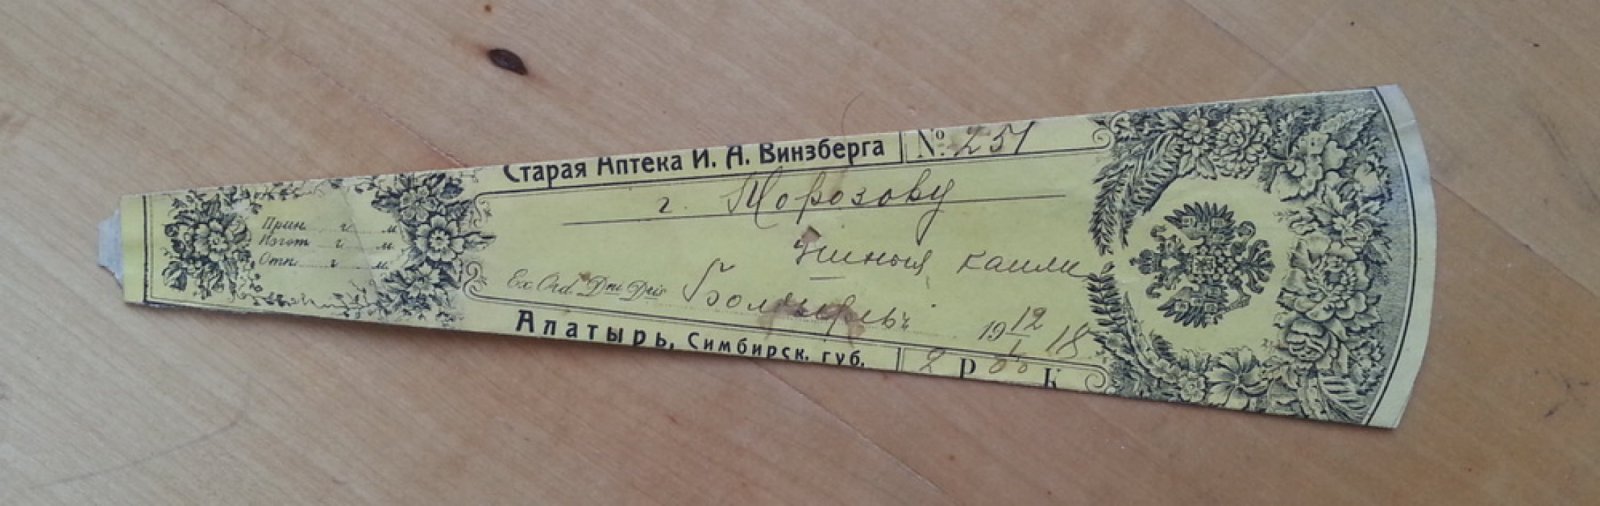 Старая Аптека И. А. Винзберга № 251
г. Морозову
Ушныя капли
Ex. Ord. Dni Dris
19 12/I 18
Алатырь, Симбирск. губ. 2 Р. К.
Прин. г. м.
Изгот. г. м.
Отп. г. м.